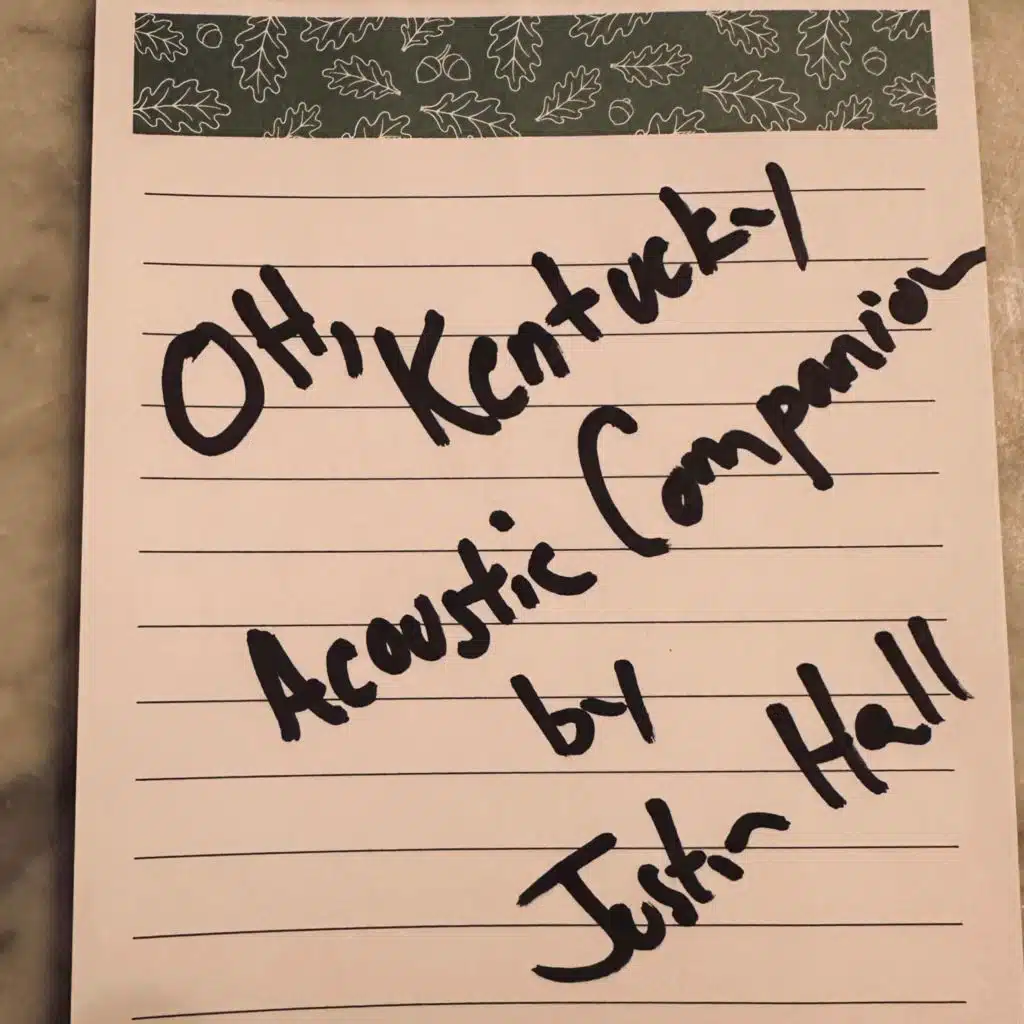 OH, Kentucky
Acoustic Companion
by
Justin Hall